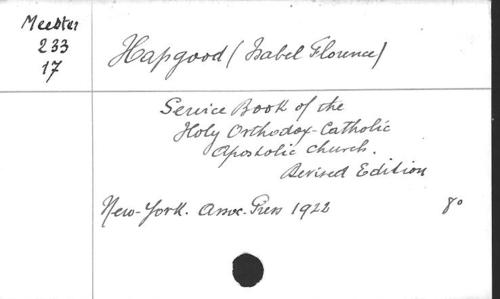 Meester
233
17
Hapgood (Isabel Florence)
Service Book of the
Holy Orthodox-Catholic
Apostolic Church.
Revised Edition
New-York. Assoc. Press 1922 8°